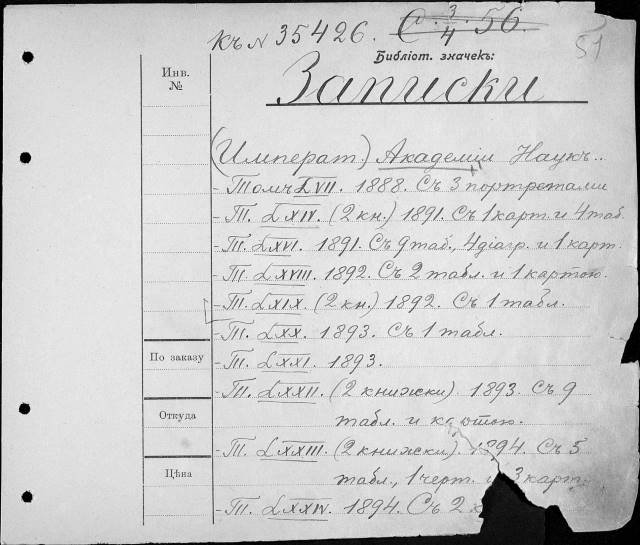 Къ № 35426. C. 3/4. 56.
51
Библіот. значекъ:
Инв. №
Записки
(Императ.) Академіи Наукъ..
- Томъ LVII. 1888. Съ 3 портретами
- Т. LXIV. (2 кн.) 1891. Съ 1 карт. и 4 таб.
- Т. LXVI. 1891. Съ 9 таб., 4 діагр. и 1 карт.
- Т. LXVIII. 1892. Съ 2 табл. и 1 картою.
- Т. LXIX. (2 кн.) 1892. Съ 1 табл.
- Т. LXX. 1893. Съ 1 табл.
По заказу
- Т. LXXI. 1893.
- Т. LXXII. (2 книжки). 1893. Съ 9
Откуда
табл. и картою.
- Т. LXXIII. (2 книжки). 1894. Съ 5
Цѣна
табл., 1 черт. и 3 карт.
- Т. LXXIV. 1894. Съ 2